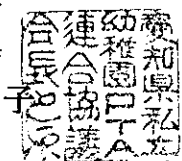 愛知県私立
幼稚園PTA
連合協議
会長
子